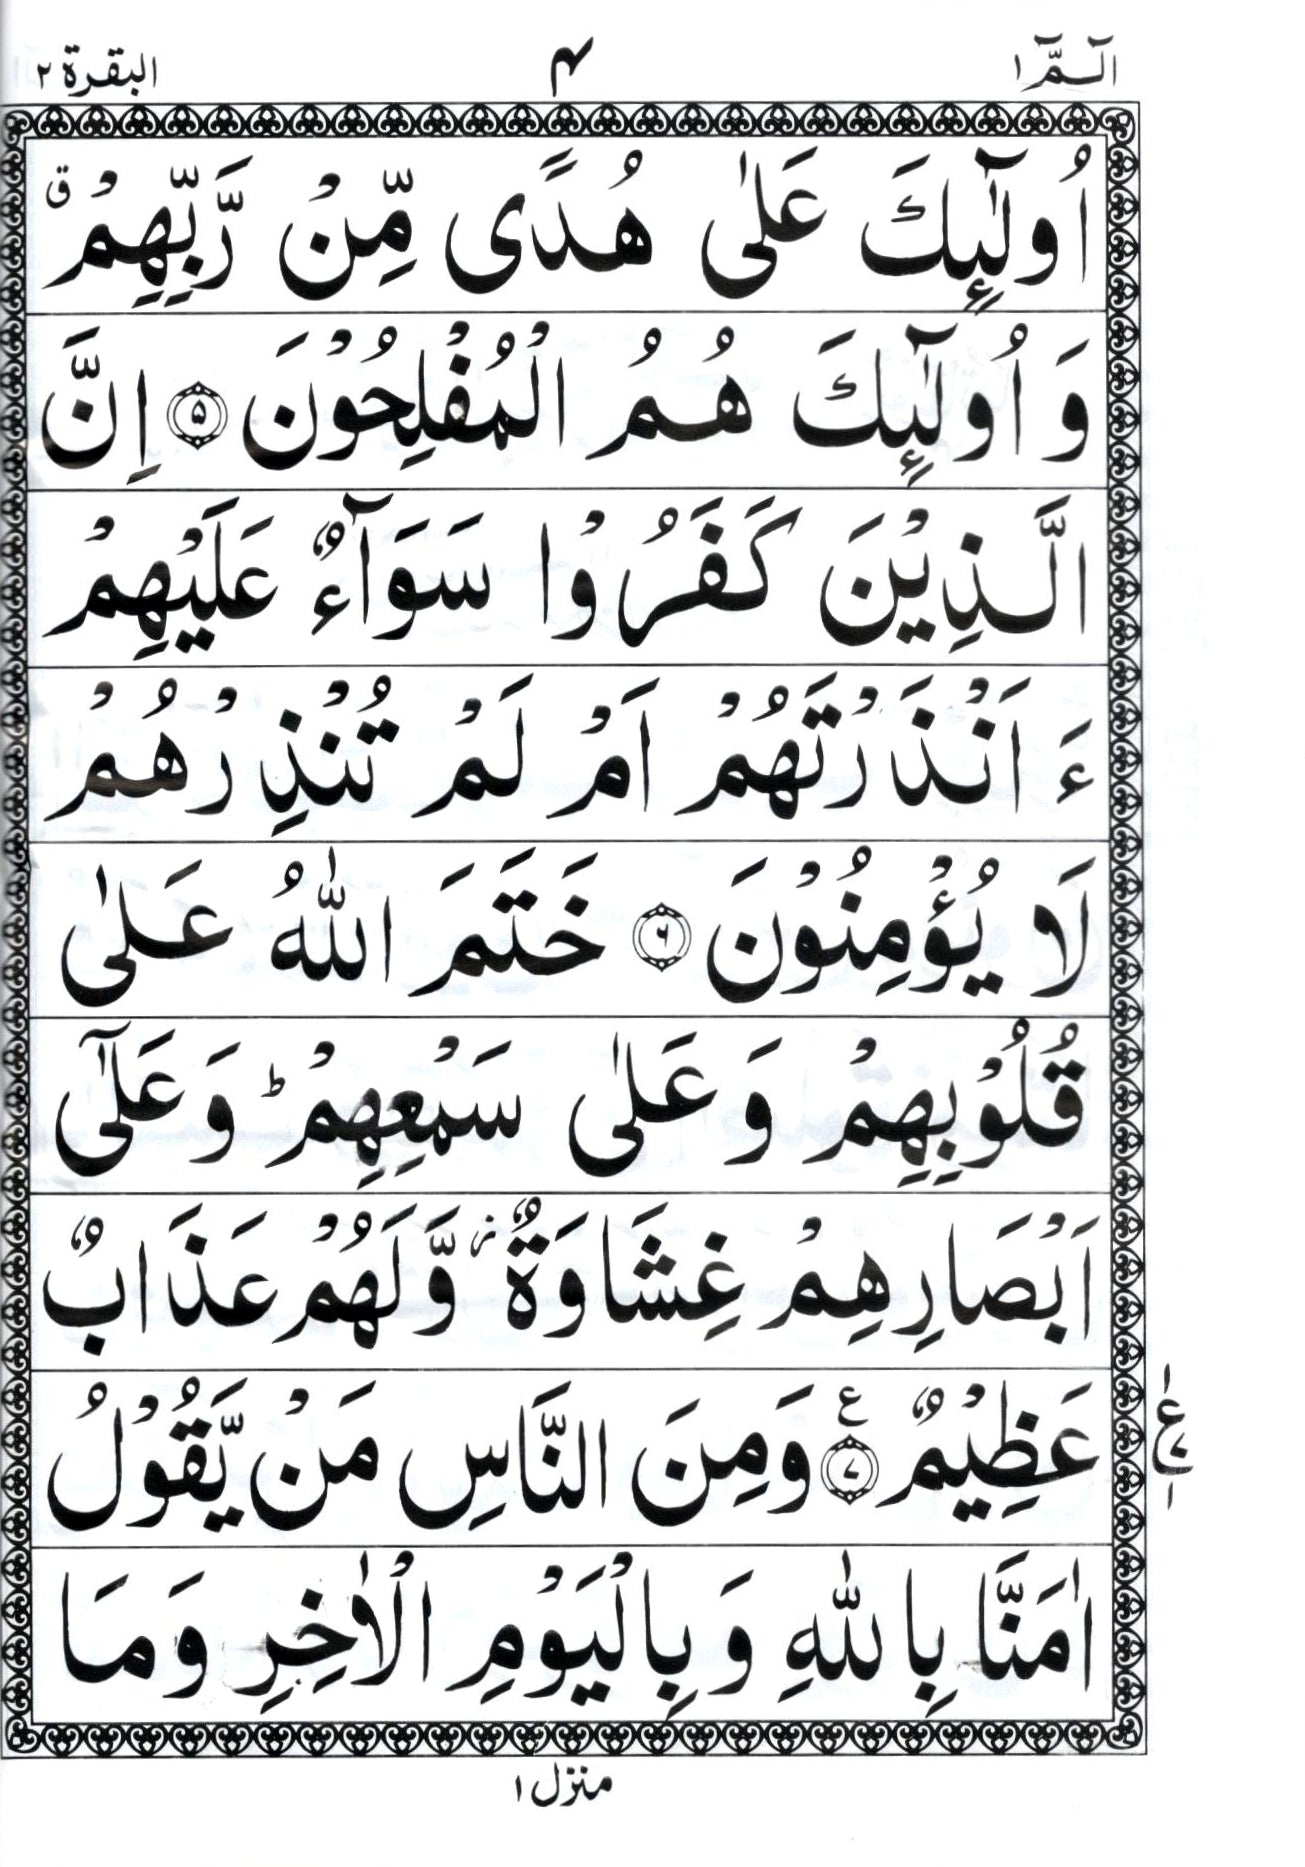 الٓـمّٓ ١ ۴ البقرة ٢
اُولٰٓئِكَ عَلٰى هُدًى مِّنْ رَّبِّهِمْ ۗ ق
وَ اُولٰٓئِكَ هُمُ الْمُفْلِحُوْنَ ۵ اِنَّ
الَّذِيْنَ كَفَرُوْا سَوَآءٌ عَلَيْهِمْ
ءَ اَنْذَرْتَهُمْ اَمْ لَمْ تُنْذِرْهُمْ
لَا يُؤْمِنُوْنَ ۶ خَتَمَ اللّٰهُ عَلٰى
قُلُوْبِهِمْ وَ عَلٰى سَمْعِهِمْ ؕ وَ عَلٰٓى
اَبْصَارِهِمْ غِشَاوَةٌ ز وَّلَهُمْ عَذَابٌ
عَظِيْمٌ ۷ ع وَمِنَ النَّاسِ مَنْ يَّقُوْلُ
١ ع ١
اٰمَنَّا بِاللّٰهِ وَبِالْيَوْمِ الْاٰخِرِ وَمَا
منزل ١